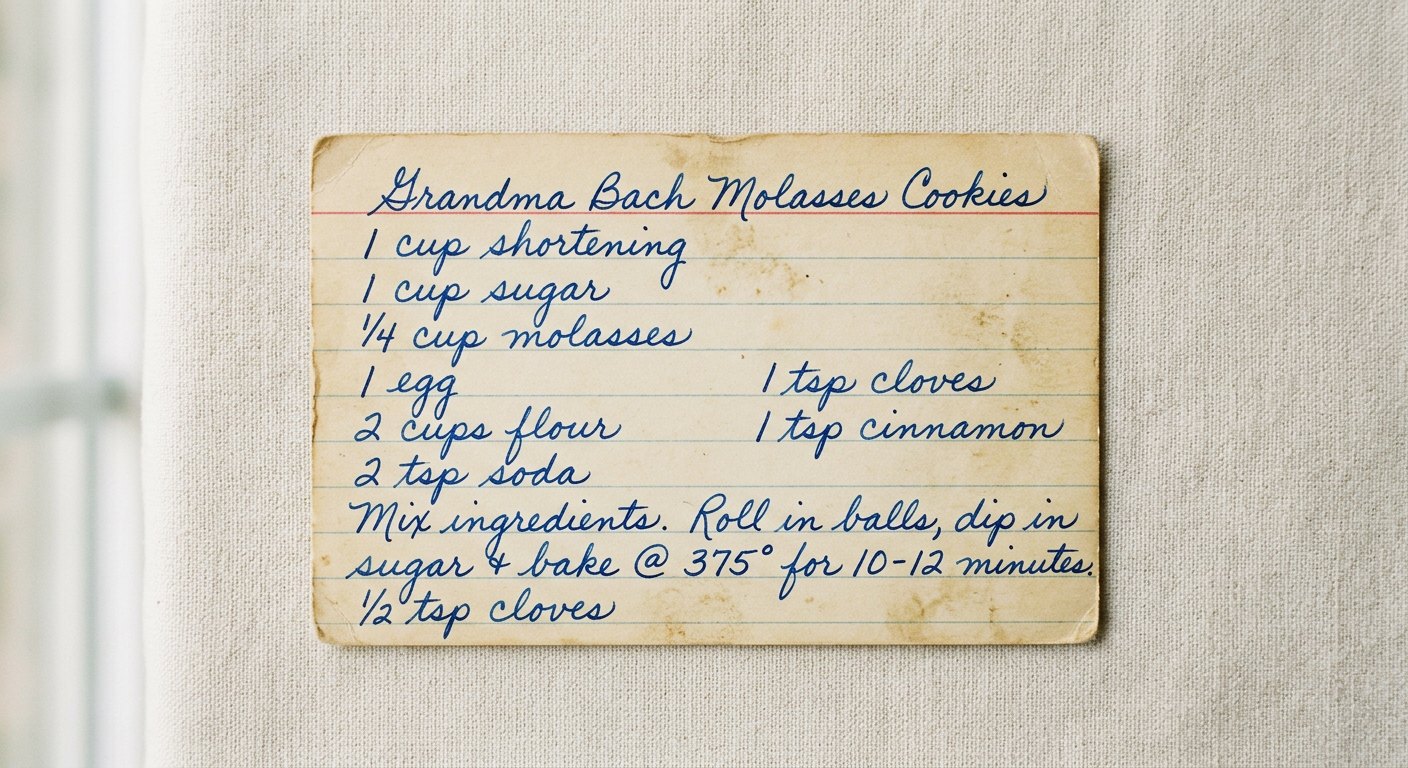 Grandma Bach Molasses Cookies
1 cup shortening
1 cup sugar
1/4 cup molasses
1 egg 1 tsp cloves
2 cups flour 1 tsp cinnamon
2 tsp soda
Mix ingredients. Roll in balls, dip in
sugar & bake @ 375° for 10-12 minutes.
1/2 tsp cloves